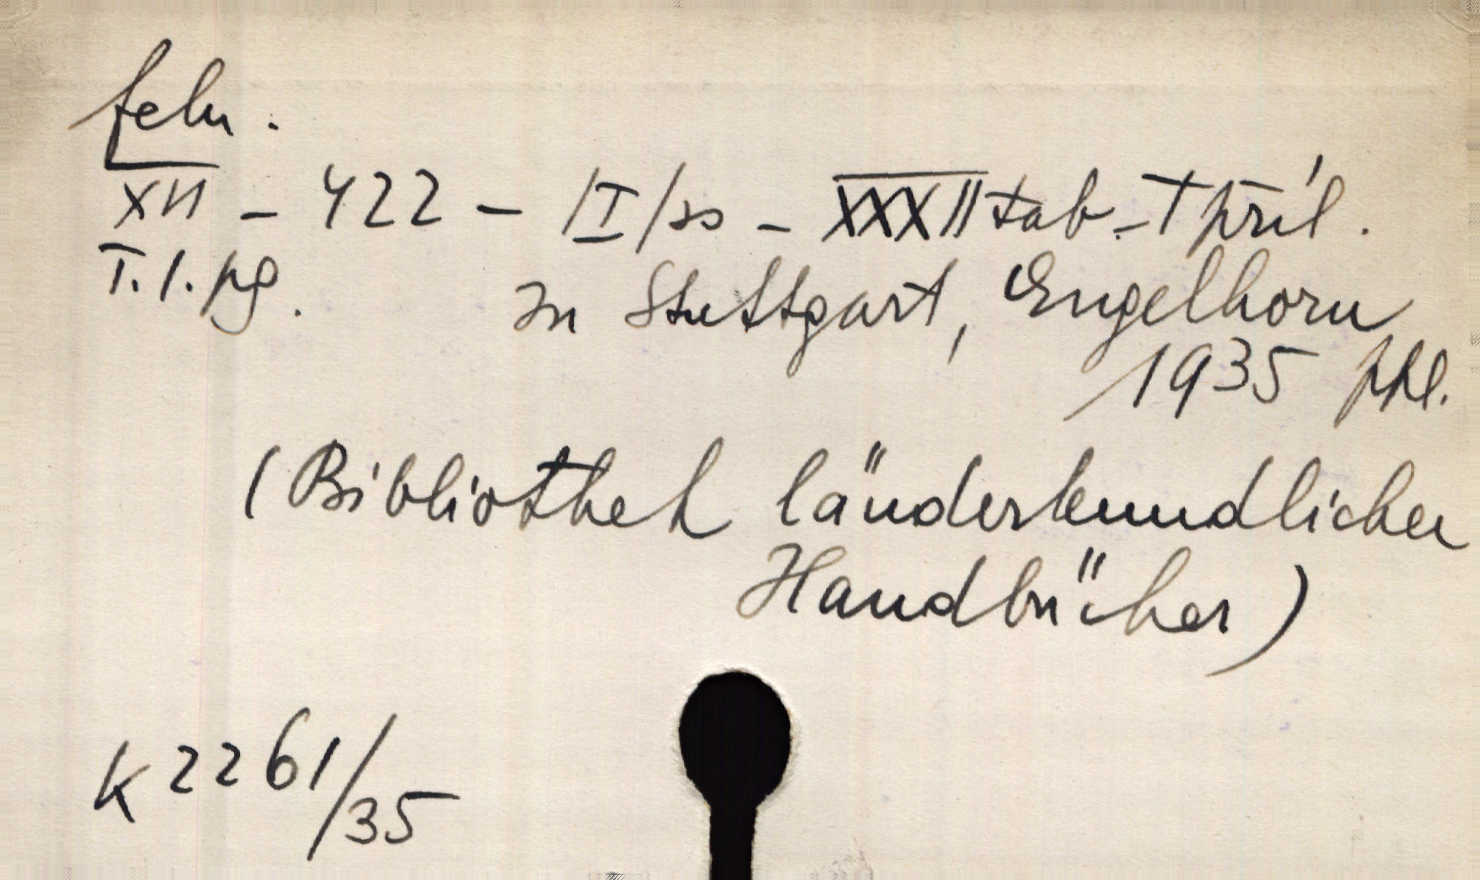 feln.
XII - 422 - |I/ss - XXXII tab. - I príl.
T. l. pg. In Stuttgart, Engelhorn
1935 ppl.
(Bibliothek länderkundlicher
Handbücher)
K 2261/35